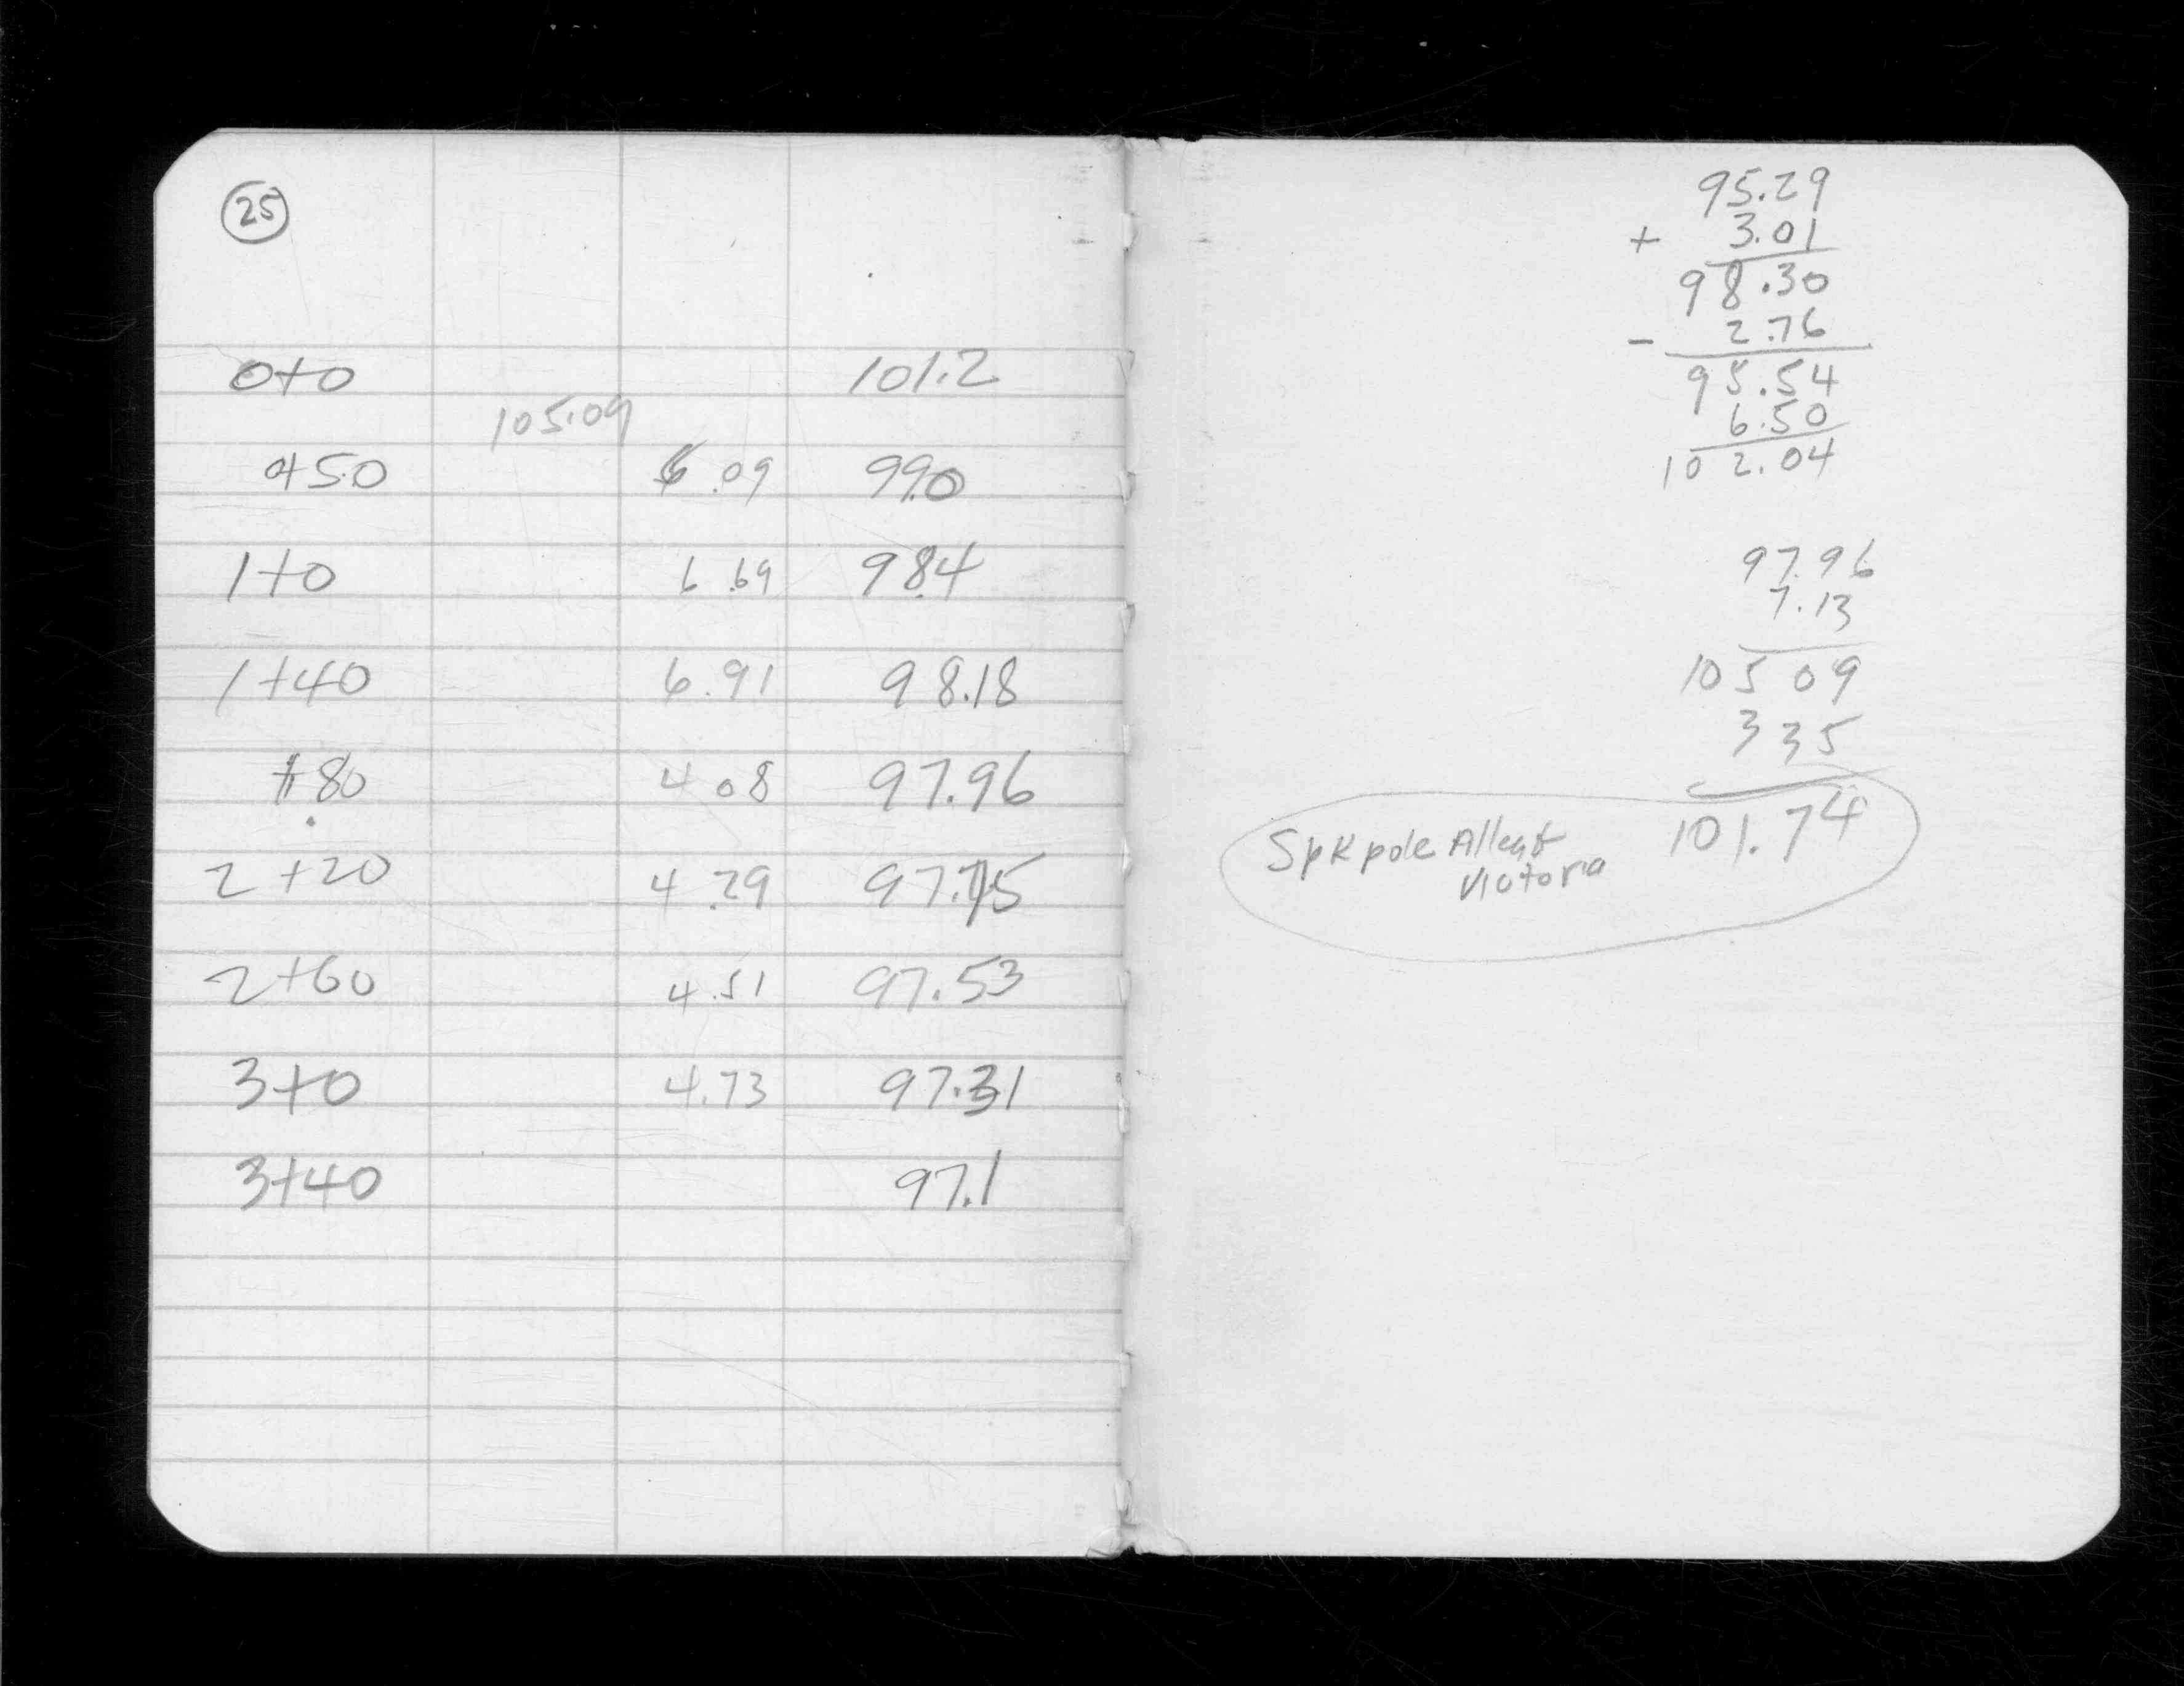 25
0+0 101.2
105.09
+50 6.09 99.0
1+0 6.69 98.4
1+40 6.91 98.18
+80 4 08 97.96
2+20 4.29 97.75
2+60 4.51 97.53
3+0 4.73 97.31
3+40 97.1
95.29
+ 3.01
98.30
- 2.76
95.54
6.50
102.04
97.96
7.13
105 09
3 35
101.74
Spk pole Alley &
Victoria